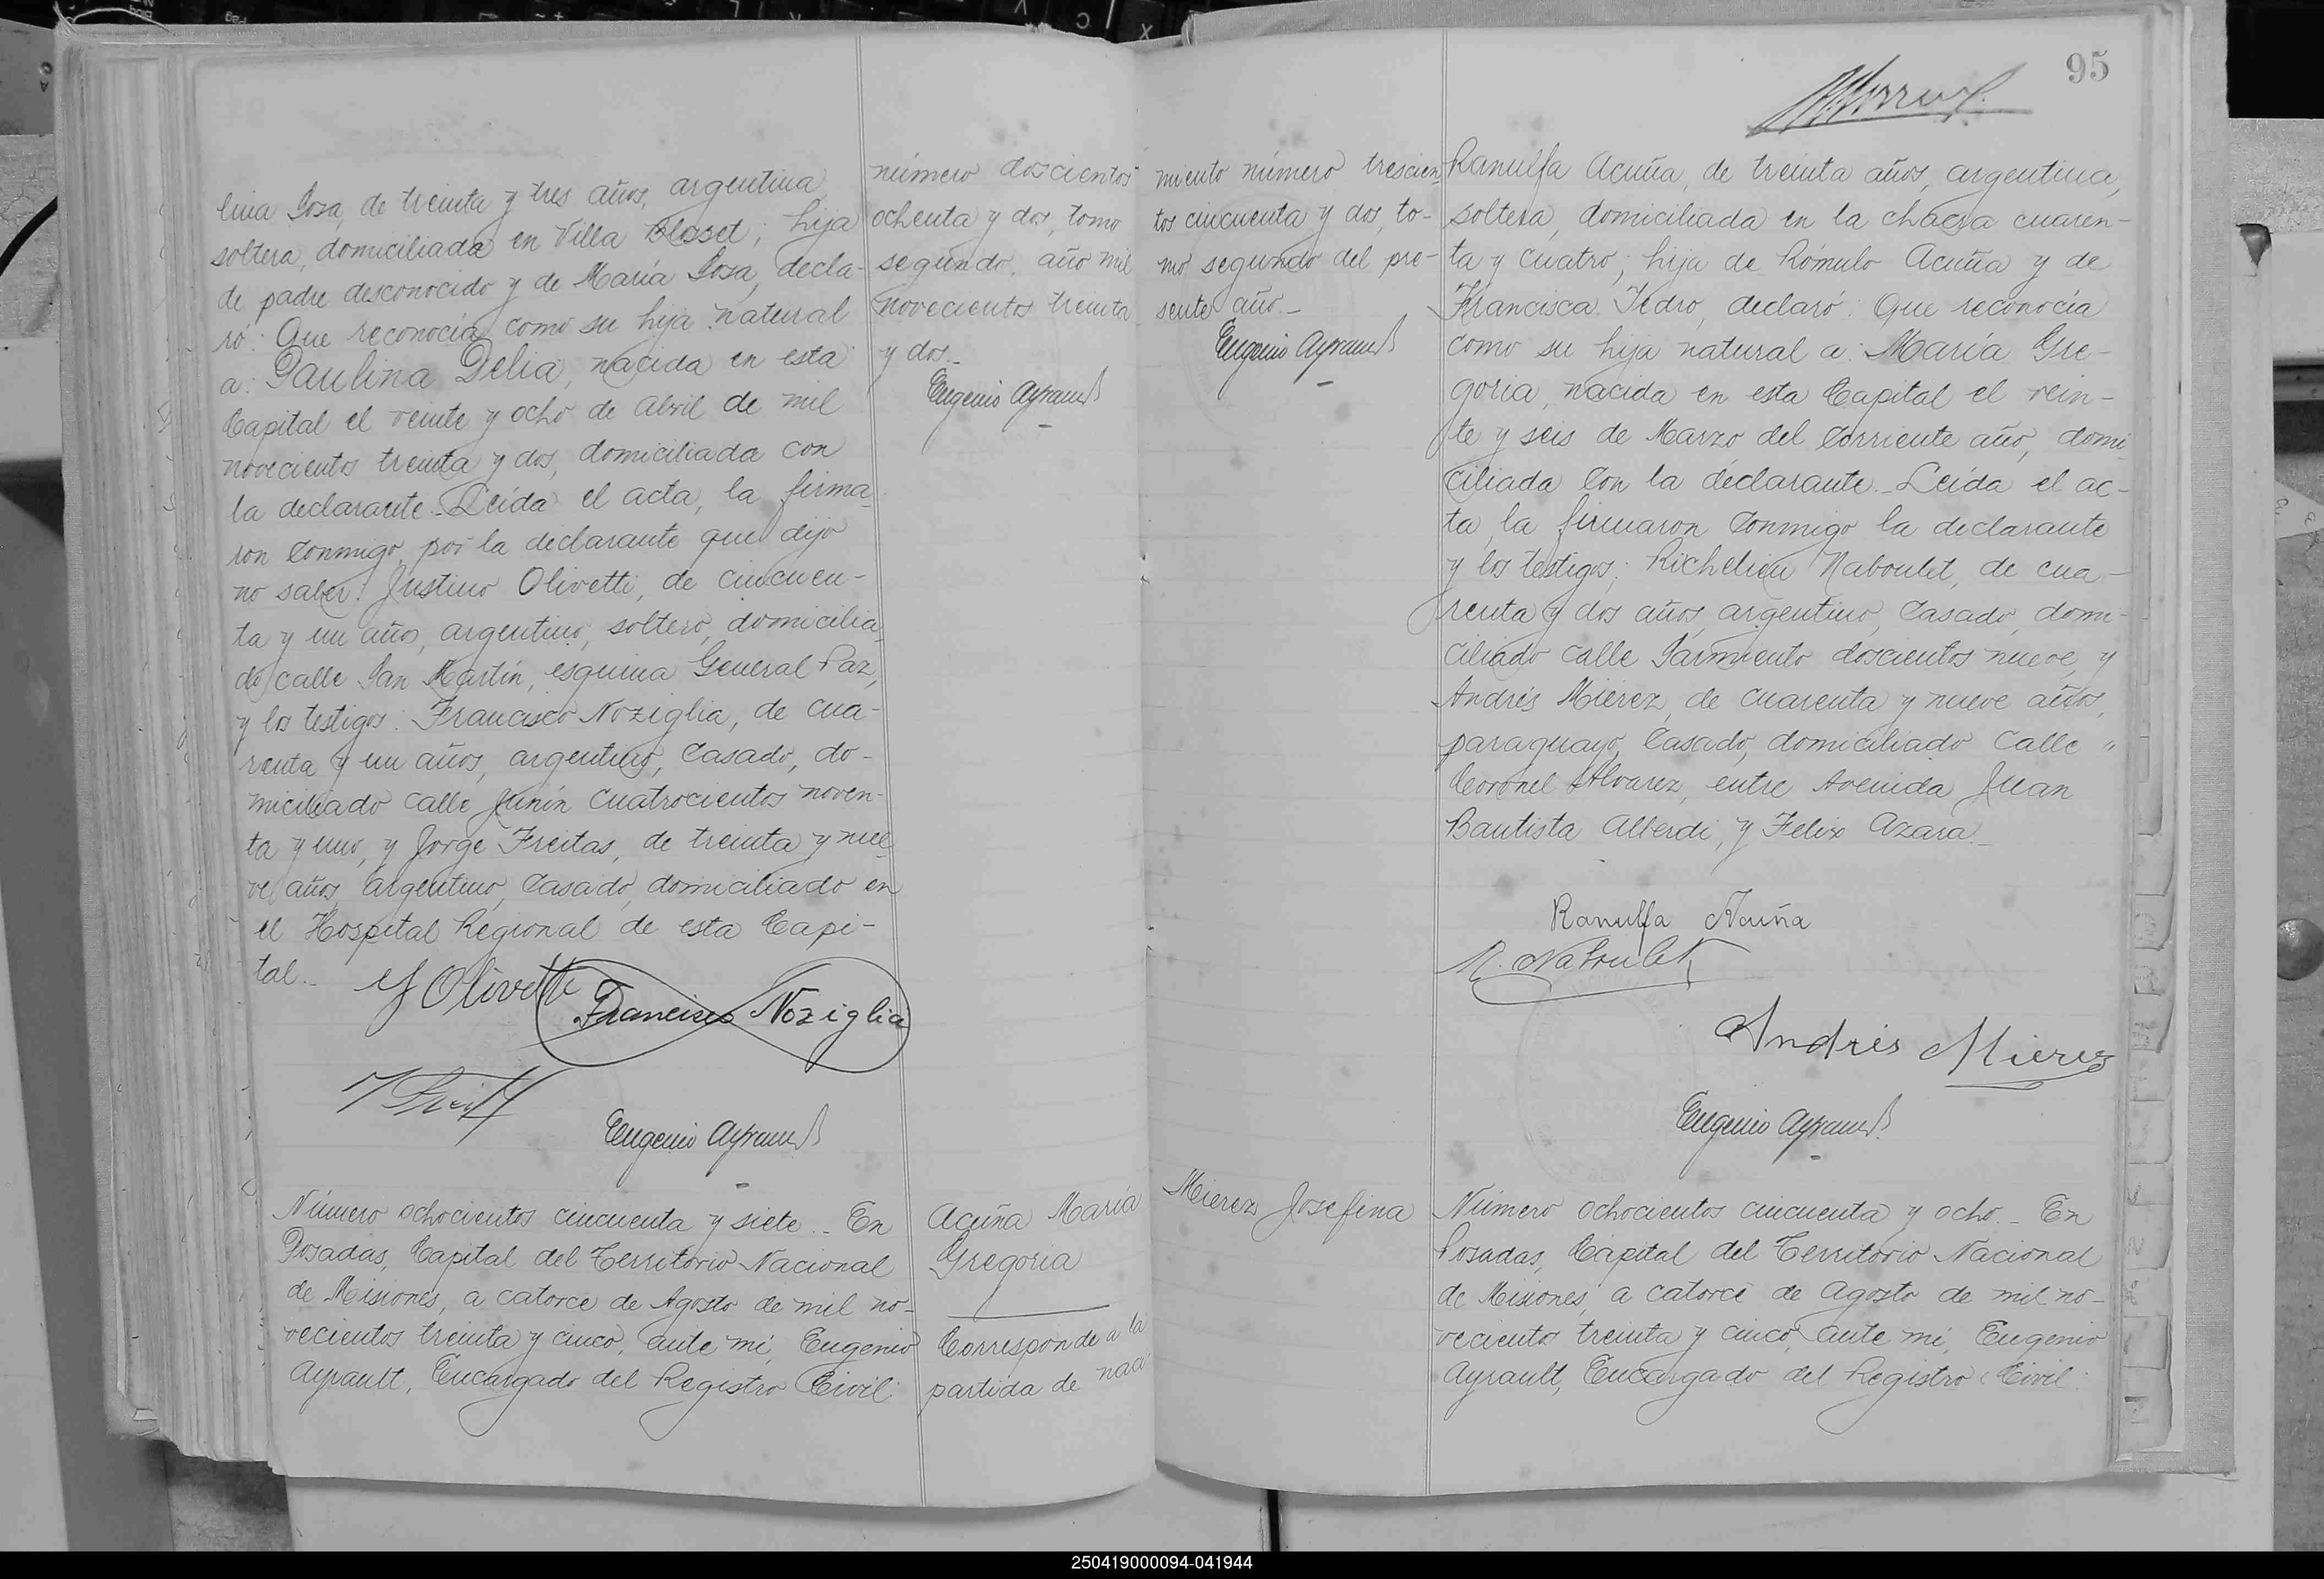 lina Sosa, de treinta y tres años, argentina
soltera, domiciliada en Villa Blosset; hija
de padre desconocido y de María Sosa, decla-
ró: Que reconocía como su hija natural
a: Paulina Delia, nacida en esta
Capital el veinte y ocho de Abril de mil
novecientos treinta y dos, domiciliada con
la declarante. Leída el acta, la firma-
ron conmigo, por la declarante que dijo
no saber: Justino Olivetti, de cincuen-
ta y un años, argentino, soltero, domicilia-
do calle San Martín, esquina General Paz,
y los testigos: Francisco Noziglia, de cua-
renta y un años, argentino, casado, do-
miciliado calle Junín cuatrocientos noven-
ta y uno, y Jorge Freitas, de treinta y nue-
ve años, argentino, casado, domiciliado en
el Hospital Regional de esta Capi-
tal.-
J Olivetti
Francisco Noziglia
Eugenio Ayrault
número doscientos
ochenta y dos, tomo
segundo, año mil
novecientos treinta
y dos.-
Eugenio Ayrault
Número ochocientos cincuenta y siete.- En
Posadas, Capital del Territorio Nacional
de Misiones, a catorce de Agosto de mil no-
vecientos treinta y cinco, ante mí, Eugenio
Ayrault, Encargado del Registro Civil:
Acuña María
Gregoria
Corresponde a la
partida de naci-
95
miento número trescien-
tos cincuenta y dos, to-
mo segundo del pre-
sente año.-
Eugenio Ayrault
Ranulfa Acuña, de treinta años, argentina,
soltera, domiciliada en la chacra cuaren-
ta y cuatro; hija de Rómulo Acuña y de
Francisca Tedro, declaró: Que reconocía
como su hija natural a: María Gre-
goria, nacida en esta Capital el vein-
te y seis de Marzo del corriente año, domi-
ciliada con la declarante.- Leída el ac-
ta, la firmaron conmigo la declarante
y los testigos: Richelieu Naboulet, de cua-
renta y dos años, argentino, casado, domi-
ciliado calle Sarmiento doscientos nueve, y
Andrés Mierez, de cuarenta y nueve años,
paraguayo, casado, domiciliado calle "
Coronel Alvarez, entre Avenida Juan
Bautista Alberdi, y Felix Azara.-
Ranulfa Acuña
R. Naboulet
Andrés Mierez
Eugenio Ayrault
Mierez Josefina
Número ochocientos cincuenta y ocho.- En
Posadas, Capital del Territorio Nacional
de Misiones, a catorce de Agosto de mil no-
vecientos treinta y cinco, ante mí, Eugenio
Ayrault, Encargado del Registro Civil:
250419000094-041944